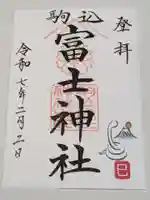 登拝
駒込
富士神社
令和七年二月二日
巳